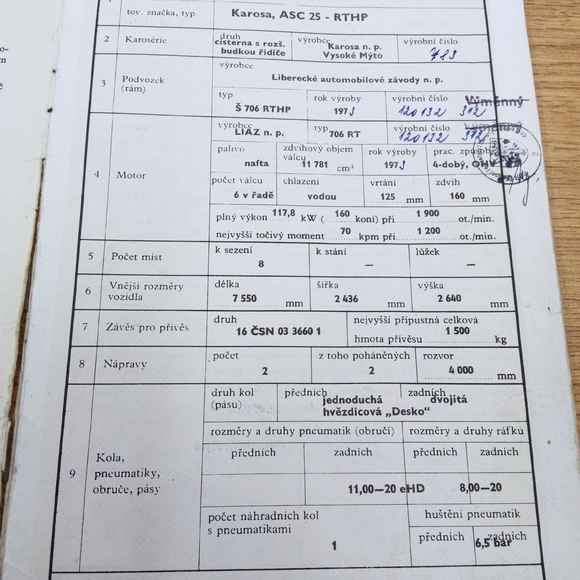 tov. značka, typ Karosa, ASC 25 - RTHP
2 Karosérie druh výrobce výrobní číslo
cisterna s rozš. budkou řidiče Karosa n. p. Vysoké Mýto 783
3 Podvozek (rám) výrobce
Liberecké automobilové závody n. p.
typ rok výroby výrobní číslo Výměnný
Š 706 RTHP 1973 120132 312
4 Motor výrobce typ výrobní číslo
LIAZ n. p. 706 RT 120132 312
palivo zdvihový objem válců rok výroby prac. způsob
nafta 11 781 cm³ 1973 4-dobý, OHV
počet válců chlazení vrtání zdvih
6 v řadě vodou 125 mm 160 mm
plný výkon 117,8 kW ( 160 koní) při 1 900 ot./min.
nejvyšší točivý moment 70 kpm při 1 200 ot./min.
5 Počet míst k sezení k stání lůžek
8 — —
6 Vnější rozměry vozidla délka šířka výška
7 550 mm 2 436 mm 2 640 mm
7 Závěs pro přívěs druh nejvyšší přípustná celková
16 ČSN 03 3660 1 hmota přívěsu 1 500 kg
8 Nápravy počet z toho poháněných rozvor
2 2 4 000 mm
9 Kola, pneumatiky, obruče, pásy
druh kol (pásu) předních zadních
jednoduchá dvojitá
hvězdicová „Desko“
rozměry a druhy pneumatik (obručí) rozměry a druhy ráfku
předních zadních předních zadních
11,00—20 eHD 8,00—20
počet náhradních kol s pneumatikami huštění pneumatik
předních zadních
1 6,5 bar